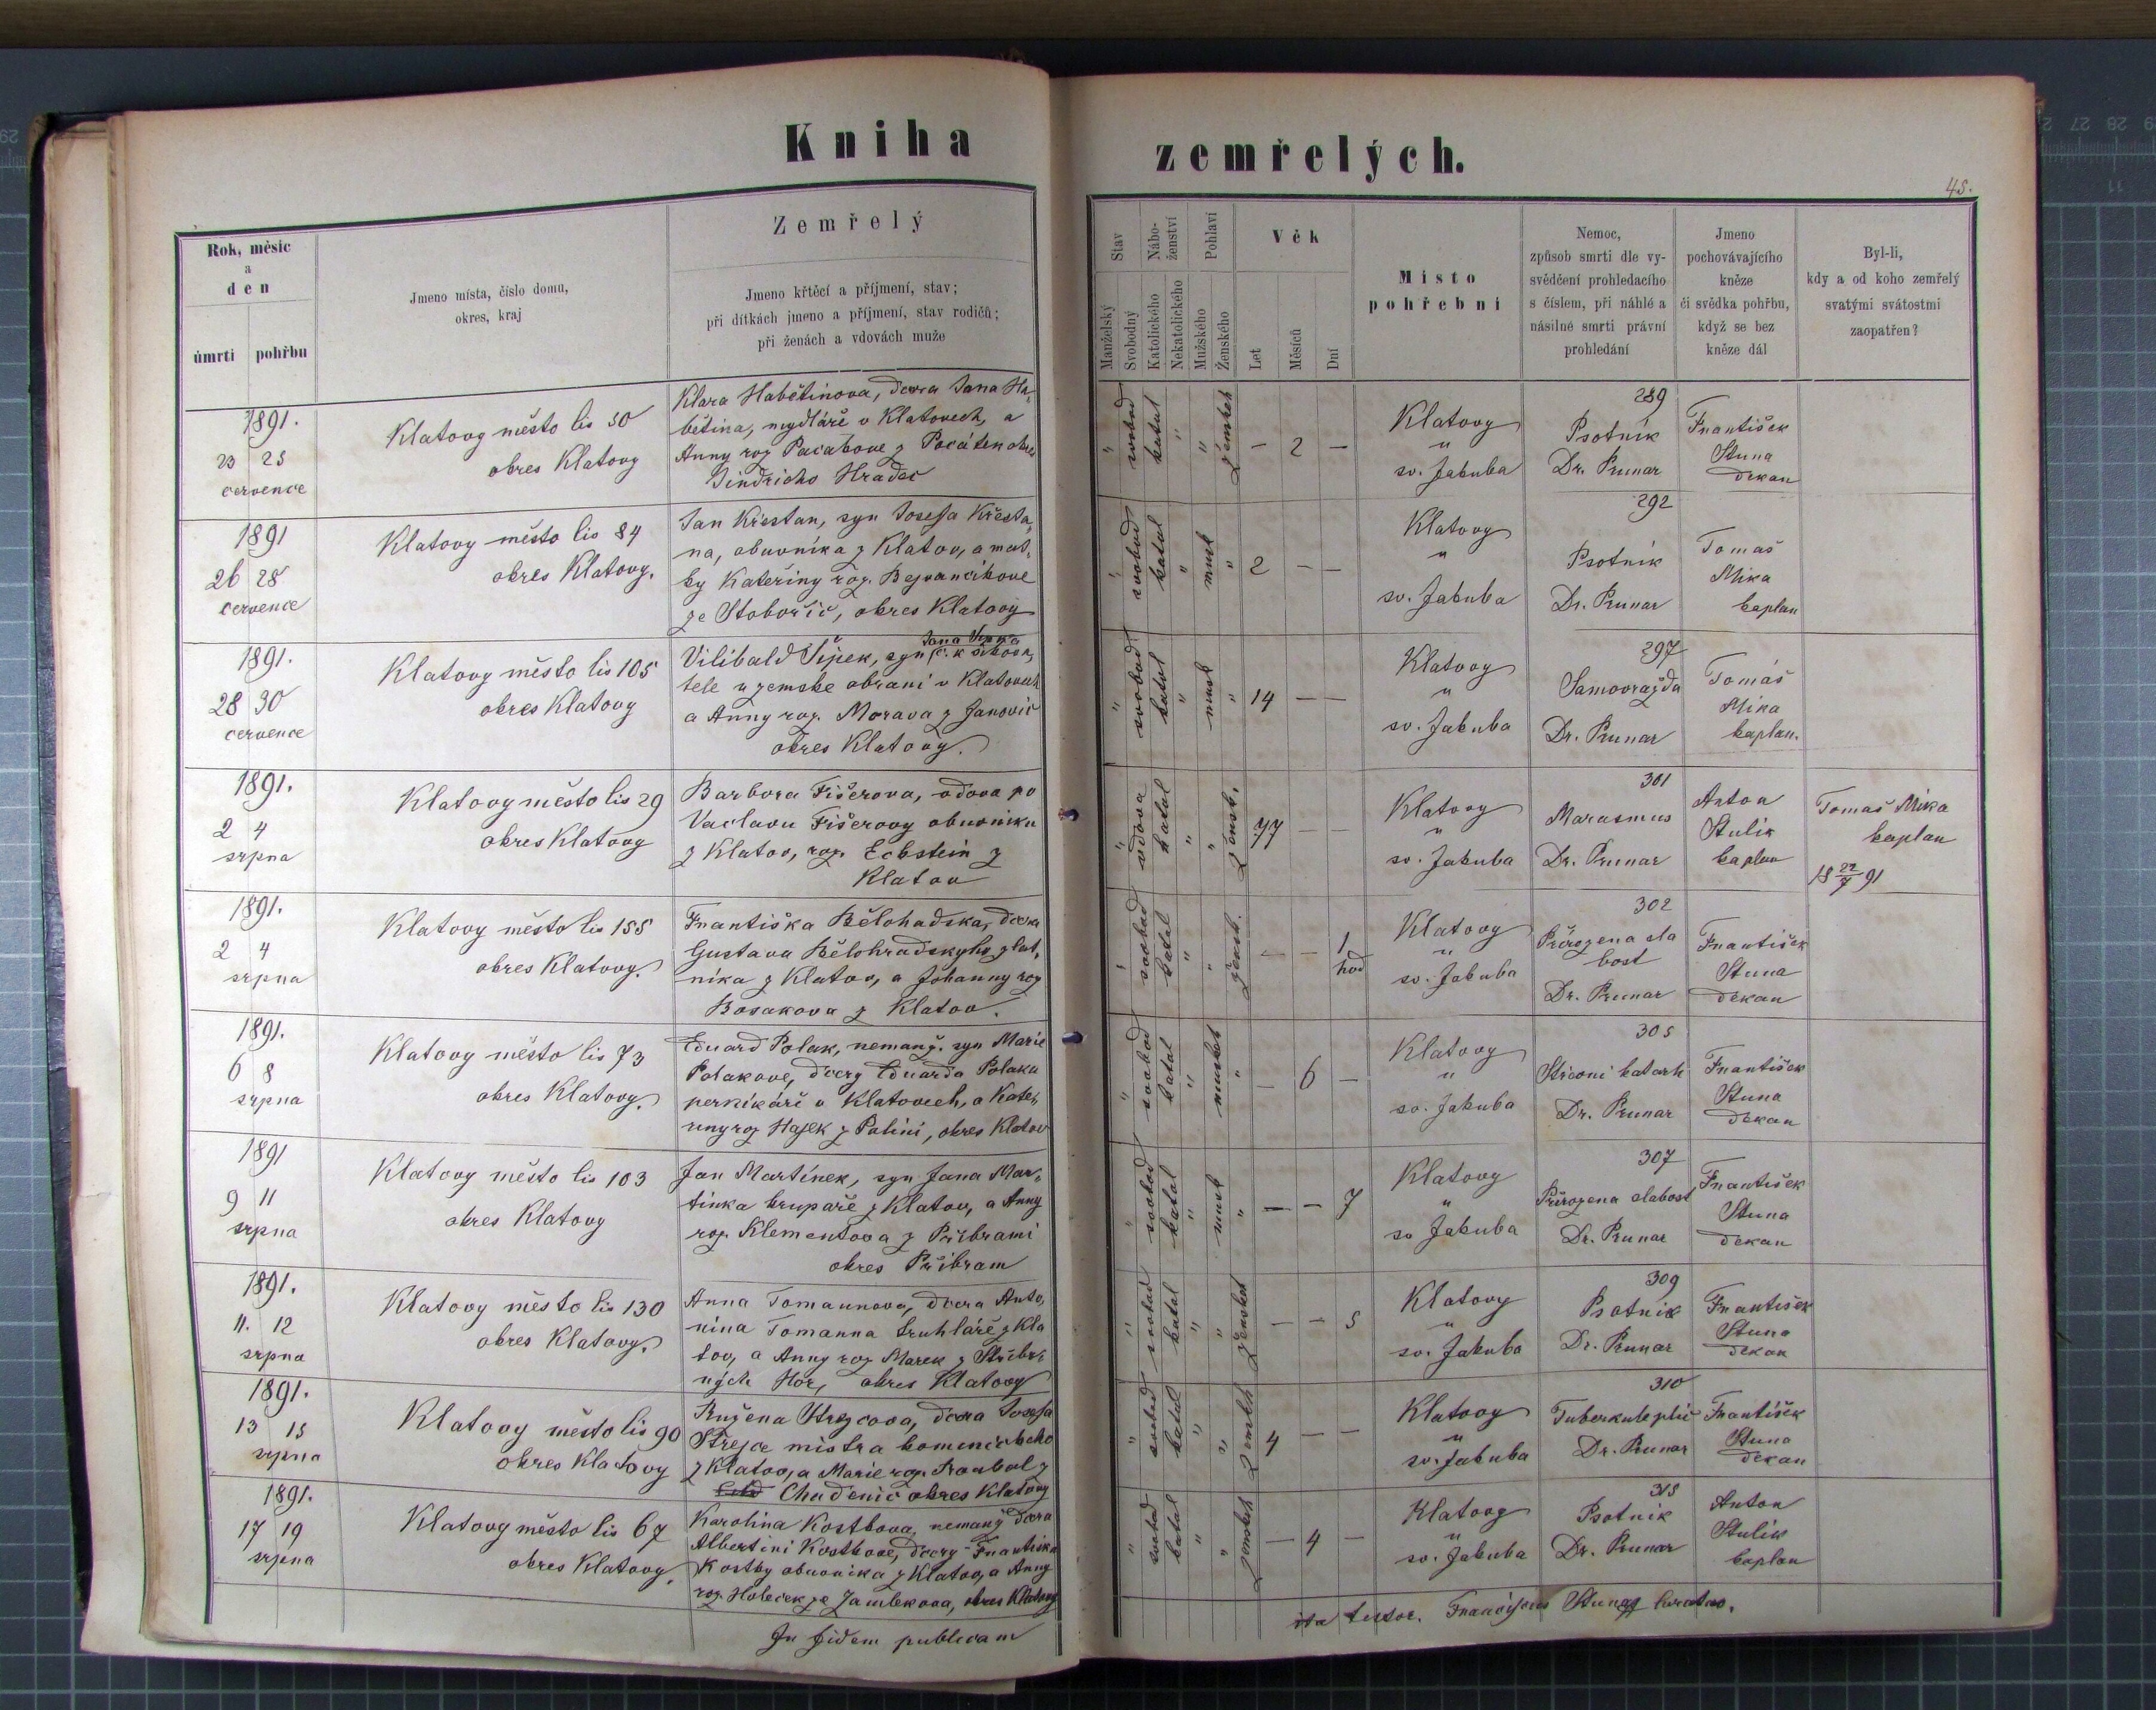 Kniha
zemřelých.
45.
Rok, měsíc
a
den
úmrtí
pohřbu
Jmeno místa, číslo domu,
okres, kraj
Zemřelý
Jmeno křtěcí a příjmení, stav;
při dítkách jmeno a příjmení, stav rodičů;
při ženách a vdovách muže
Stav
Manželský
Svobodný
Nábo-
ženství
Katolického
Nekatolického
Pohlaví
Mužského
Ženského
Věk
Let
Měsíců
Dní
Místo
pohřební
Nemoc,
způsob smrti dle vy-
svědčení prohledacího
s číslem, při náhlé a
násilné smrti právní
prohledání
Jmeno
pochovávajícího
kněze
či svědka pohřbu,
když se bez
kněze dál
Byl-li,
kdy a od koho zemřelý
svatými svátostmi
zaopatřen?
1891.
23 25
července
Klatovy město čis 50
okres Klatovy
Klara Habětinova, dcera Jana Ha-
bětina, mydláře v Klatovech, a
Anny roz Pacakove z Počátek okres
Jindřicho Hradec
" svobod katol " " ženskeh — 2 —
Klatovy
"
sv. Jakuba
289
Psotník
Dr. Prunar
František
Stuna
děkan
1891
26 28
července
Klatovy město čis 84
okres Klatovy.
Jan Křestan, syn Josefa Křesta-
na, obuvníka z Klatov, a mat-
ky Kateřiny roz.
ze Stobořic, okres Klatovy
" svobod katol " musk " 2 — —
Klatovy
"
sv. Jakuba
292
Psotník
Dr. Prunar
Tomaš
Mika
kaplan
1891.
28 30
července
Klatovy město čis 105
okres Klatovy
Jana Šipka
Vilibald Šipek, syn c. k.
tele u zemske obrani v Klatovech
a Anny roz. Morava z Janovic
okres Klatovy.
" svobod katol " musk " 14 — —
Klatovy
"
sv. Jakuba
297
Samovražda
Dr. Prunar
Tomáš
Mika
kaplan.
1891.
2 4
srpna
Klatovy město čis 29
okres Klatovy
Barbora Fišerova, vdova po
Vaclavu Fišerovy obuvniku
z Klatov, roz. Eckstein z
Klatov
" vdova katol " " žensk. 77 — —
Klatovy
"
sv. Jakuba
301
Marasmus
Dr. Prunar
Anton
Stulik
kaplan
Tomaš Mika
kaplan
18 22/7 91
1891.
2 4
srpna
Klatovy město čis 155
okres Klatovy.
Františka Bělohadska, dcera
Gustava Bělohradskyho, zlat-
nika z Klatov, a Johanny roz
Bosakova z Klatov.
" svobod katol " " žensk. — — 1
hod
Klatovy
"
sv. Jakuba
302
Přirozena sla
bost
Dr. Prunar
František
Stuna
děkan
1891.
6 8
srpna
Klatovy město čis 73
okres Klatovy.
Eduard Polak, nemanž. syn Marie
Polakove, dcery Eduarda Polaka
perníkáře v Klatovech, a Kateř-
iny roz Hajek z Paliní, okres Klatov
" svobod katol " muskeh " — 6 —
Klatovy
"
sv. Jakuba
305
Střevni katarh
Dr. Prunar
František
Stuna
děkan
1891
9 11
srpna
Klatovy město čis 103
okres Klatovy
Jan Martínek, syn Jana Mar-
tinka krupaře z Klatov, a Anny
roz. Klementova z Přibrami
okres Přibram
" svobod katol " musk " — — 7
Klatovy
"
sv Jakuba
307
Přirozena slabost
Dr. Prunar
František
Stuna
děkan
1891.
11. 12
srpna
Klatovy město čis 130
okres Klatovy.
Anna Tomannova, dcera Anto-
nina Tomanna truhláře z Kla
tov, a Anny roz Marek z Stříbr-
ných Hor, okres Klatovy
" svobod katol " " ženskeh — — 5
Klatovy
"
sv. Jakuba
309
Psotnik
Dr. Prunar
František
Stuna
děkan
1891.
13 15
srpna
Klatovy město čis 90
okres Klatovy
Ružena Strejcova, dcera Josefa
Střejce mistra kominickeho
z Klatov, a Marie roz.
Chudenic okres Klatovy
" svobod katol " " ženskeh 4 — —
Klatovy
"
sv. Jakuba
310
Tuberkule plic
Dr. Prunar
František
Stuna
děkan
1891.
17 19
srpna
Klatovy město čis 67
okres Klatovy.
Karolina Kostkova, nemanž dcera
Albertini Kostkove, dcery Františka
Kostky obuvnika z Klatov, a Anny
roz. Holeček ze Jamlekova, okres Klatovy
" svobod katol " " ženskeh — 4 —
Klatovy
"
sv. Jakuba
315
Psotnik
Dr. Prunar
Anton
Stulik
kaplan
In fidem publicam
ita testor. Franciscus Stuna curatus.